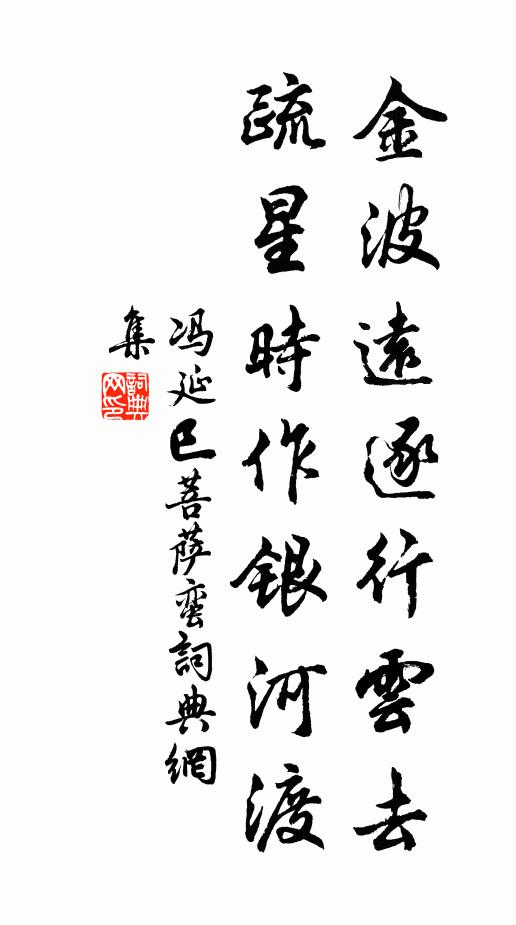 金波遠逐行雲去
疏星時作銀河渡
冯延巳菩萨蛮詞典網
集
詞典网印